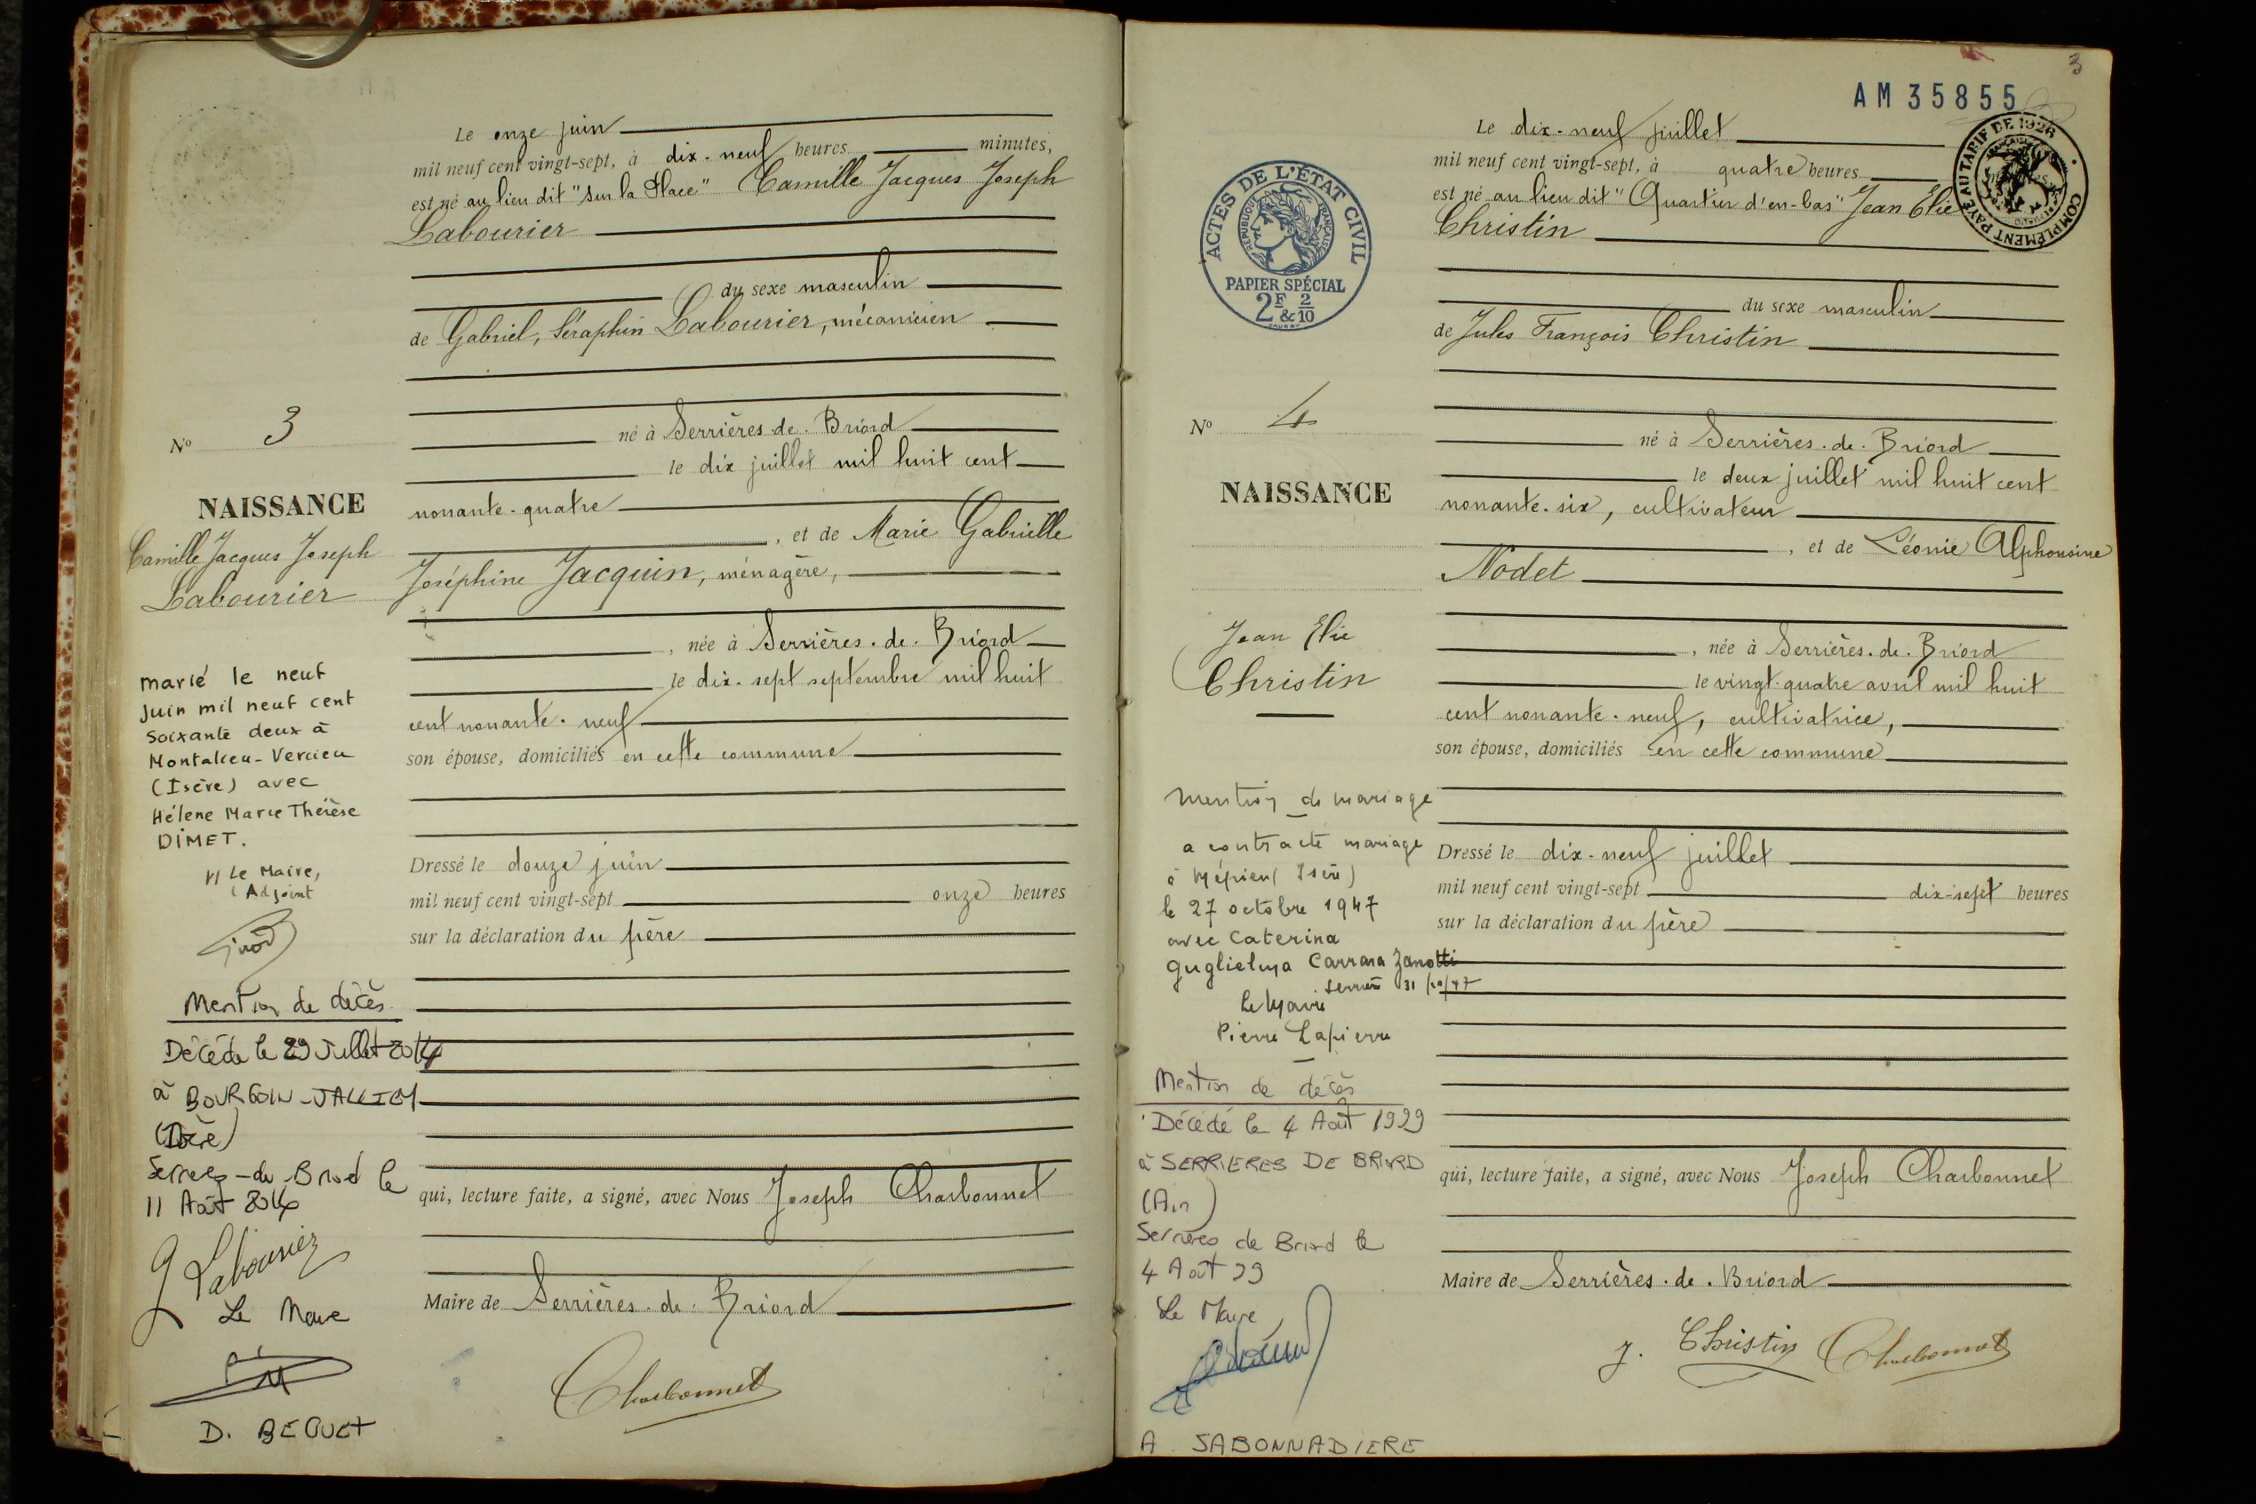 Le onze juin
mil neuf cent vingt-sept, à dix-neuf heures minutes,
est né au lieu dit "sur la Place" Camille Jacques Joseph
Labourier
du sexe masculin
de Gabriel, Séraphin Labourier, mécanicien
né à Serrières-de-Briord
le dix juillet mil huit cent
nonante-quatre
, et de Marie Gabrielle
Joséphine Jacquin, ménagère,
, née à Serrières-de-Briord
le dix-sept septembre mil huit
cent nonante-neuf
son épouse, domiciliés en cette commune
Dressé le douze juin
mil neuf cent vingt-sept onze heures
sur la déclaration du père
qui, lecture faite, a signé, avec Nous Joseph Charbonnet
Maire de Serrières-de-Briord
Charbonnet
No 3
NAISSANCE
Camille Jacques Joseph
Labourier
marié le neuf
Juin mil neuf cent
soixante deux à
Montalieu-Vercieu
(Isère) avec
Hélene Marie Thérèse
DIMET.
P/ Le Maire,
l'Adjoint
Mention de décès
Décédé le 29 Juillet 2014
à BOURGOIN-JALLIEU
(Isère)
Serrières-de-Briord le
11 Août 2014
G Labourier
Le Maire
D. BEGUET
3
AM 35855
COMPLÉMENT PAYÉ AU TARIF DE 1926
ACTES DE L'ÉTAT CIVIL
RÉPUBLIQUE FRANÇAISE
PAPIER SPÉCIAL
2F & 2/10
Le dix-neuf juillet
mil neuf cent vingt-sept, à quatre heures
est né au lieu dit "Quartier d'en-bas" Jean Elie
Christin
du sexe masculin
de Jules François Christin
né à Serrières-de-Briord
le deux juillet mil huit cent
nonante-six, cultivateur
, et de Léonie Alphonsine
Nodet
, née à Serrières-de-Briord
le vingt-quatre avril mil huit
cent nonante-neuf, cultivatrice,
son épouse, domiciliés en cette commune
Dressé le dix-neuf juillet
mil neuf cent vingt-sept dix-sept heures
sur la déclaration du père
qui, lecture faite, a signé, avec Nous Joseph Charbonnet
Maire de Serrières-de-Briord
J. Christin Charbonnet
No 4
NAISSANCE
Jean Elie
Christin
Mention de mariage
a contracté mariage
à Mépieu (Isère)
le 27 octobre 1947
avec Caterina
Guglielma Carrara Zanotti
Serrières 31/10/47
Le Maire
Pierre Lapierre
Mention de décès
Décédé le 4 Août 1999
à SERRIERES DE BRIORD
(Ain)
Serrières de Briord le
4 Août 99
Le Maire
A SABONNADIERE